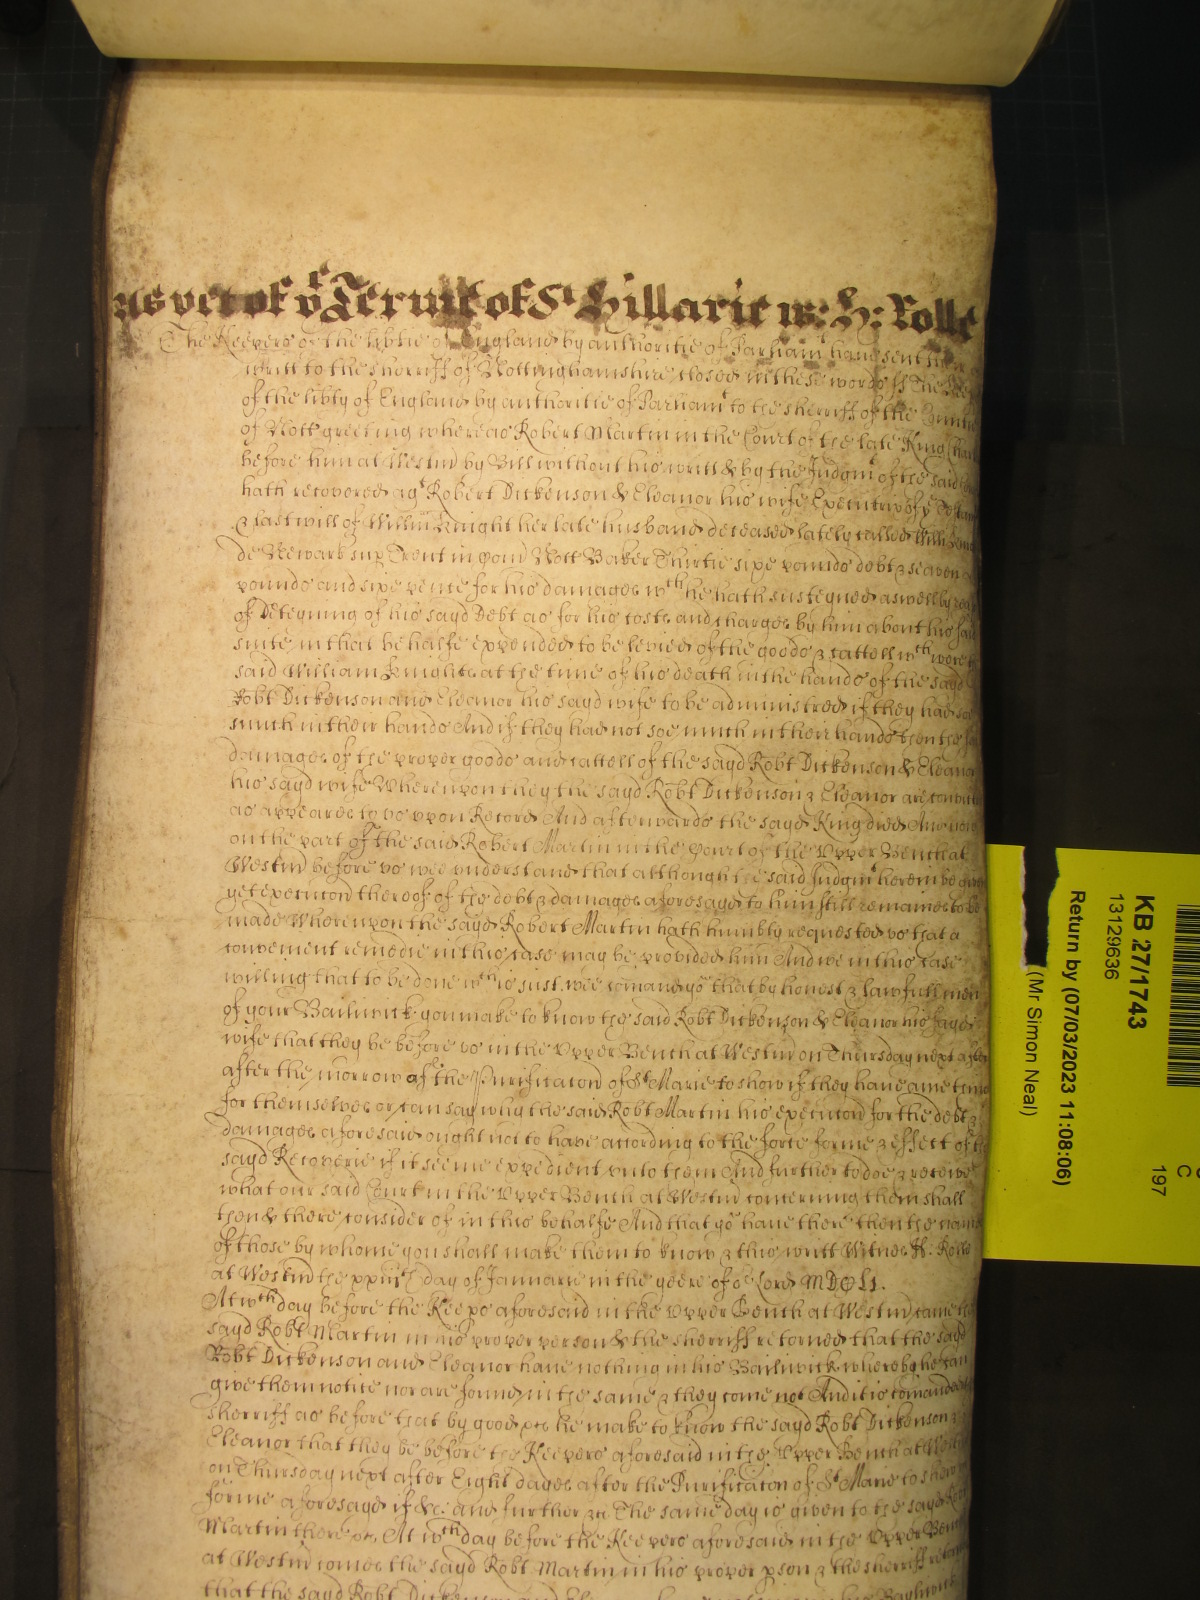 as yet of ye Terme of St Hillarie wit: H: Rolle
The Keepers of the libtie of England by authoritie of Parliamt have sent their
writt to the Sherriff of Nottinghamshire closed in these words ss The Keeps
of the libty of England by authoritie of Parliamt to the Sherriff of the Countie
of Nott greeting whereas Robert Martin in the Court of the late King Char
before him at Westmr by Bill without his writt & by the Judgmt of the said Court
hath recovered agt Robert Dickenson & Eleanor his wife Executrix of ye Testam
& last will of Willm Knight her late husband deceased lately called Willm
de Newark sup Trent in Com Nott Baker Thirtie sixe pounds debt & seaven
pounds and sixe pence for his damages wch he hath susteyned aswell by reason
of Deteyning of his sayd Debt as for his costs and charges by him about his said
suite in that behalfe expended to be levied of the goods & cattell wch were the
said William Knights at the time of his death in the hands of the sayd
Robt Dickenson and Eleanor his sayd wife to be administred if they had soe
much in their hands And if they had not soe much in their hands then the said
damages of the proper goods and cattell of the sayd Robt Dickenson & Eleanor
his sayd wife Whereupon they the sayd Robt Dickenson & Eleanor are convicted
as appeares to us upon Record And afterwards the sayd King died And now
on the part of the said Robert Martin in the Court of the Upper Bench at
Westmr before us wee understand that although the said Judgmt herein be given
yet execucon thereof of the debt & damages aforesayd to him still remaines to be
made Whereupon the sayd Robert Martin hath humbly requested us that a
convenient remedie in this case may be provided him And we in this case
willing that to be done wch is just wee comand yo that by honest & lawfull men
of your Bailiwick you make to know the said Robt Dickenson & Eleanor his sayd
wife that they be before us in the Upper Bench at Westmr on Thursday next after
after the morrow of the Purificacon of St Marie to show if they have ame thing
for themselves or can say why the said Robt Martin his execucon for the debt &
damages aforesaid ought not to have according to the force forme & effect of the
sayd Recoverie if it seeme expedient unto them And further to doe & receive
what our said Court in the Upper Bench at Westmr concerning them shall
then & there consider of in this behalfe And that yo have there then the names
of those by whome you shall make them to know & this writt Witnes H: Rolle
at Westmr the xxiijth day of Januarie in the yeere of or Lord MDCLI.
At wch day before the Keeps aforesaid in the Upper Bench at Westmr came the
sayd Robt Martin in his proper person & the sherriff retorned that the sayd
Robt Dickenson and Eleanor have nothing in his Bailiwick whereby he can
give them notice nor are found in the same & they come not And it is comanded the
sherriff as before that by good &c he make to know the sayd Robt Dickenson &
Eleanor that they be before the Keepers aforesaid in the Upper Bench at Westmr
on Thursday next after Eight dayes after the Purificacon of St Marie to shew in
forme aforesayd if &c: and further &c The same day is given to the sayd Robt
Martin there &c. At wch day before the Keepers aforesaid in the Upper Bench
at Westmr comes the sayd Robt Martin in his proper pson & the sherriff retorned
that the sayd Robt Dickenson and Eleanor have nothing in his Bayliwick
KB 27/1743
13129636
(Mr Simon Neal)
Return by (07/03/2023 11:08:06)
C
197